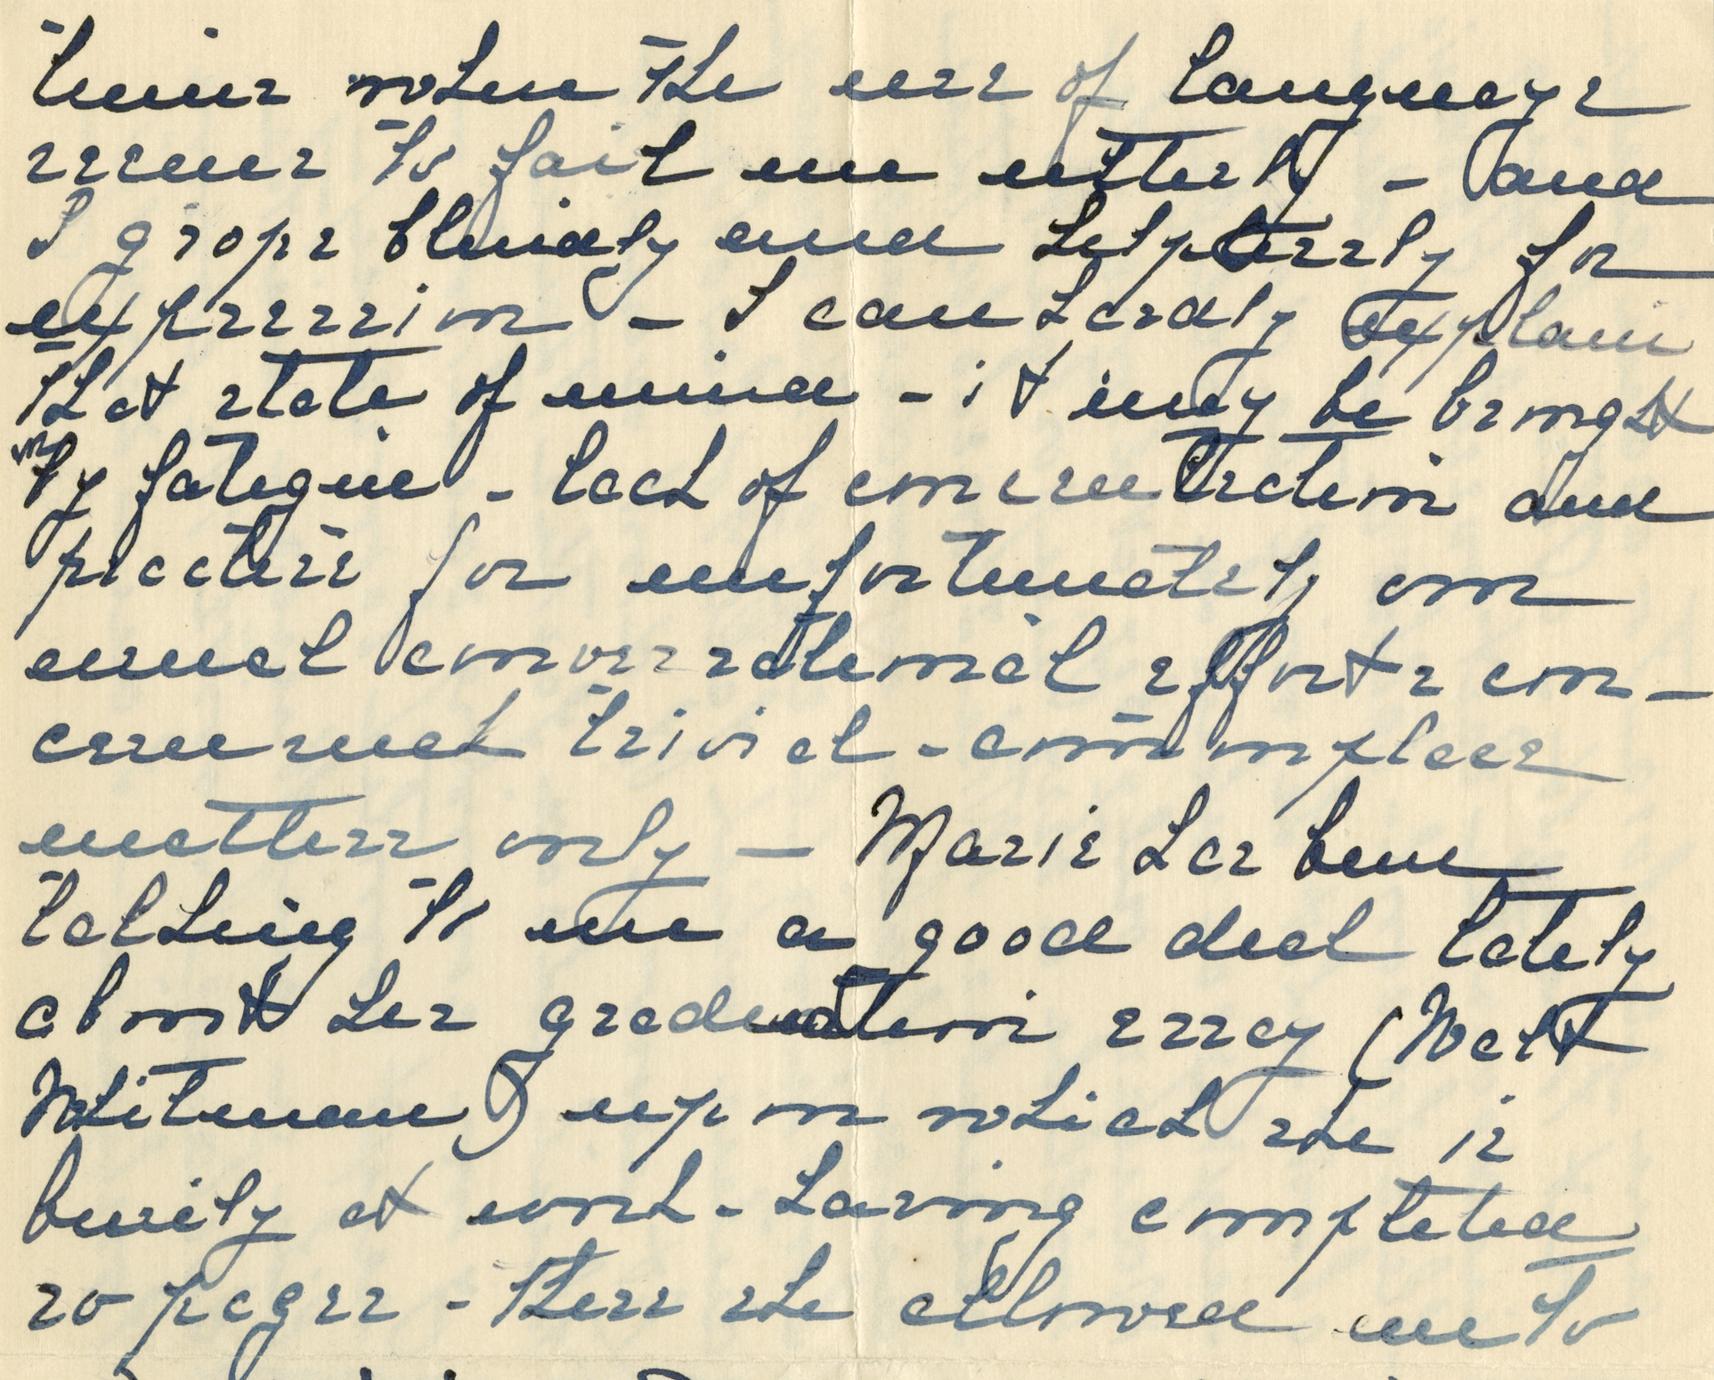 times when the use of language
seems to fail me utterly - and
I grope blindly and helplessly for
expression - I can hardly explain
that state of mind - it may be brought
on by fatigue - lack of concentration and
practise for unfortunately our
usual conversational efforts con-
cerned trivial - commonplace
matters only - Marie has been
talking to me a good deal lately
about her graduation essay (Walt
Whitman) upon which she is
busily at work - having completed
20 pages - these she allowed me to